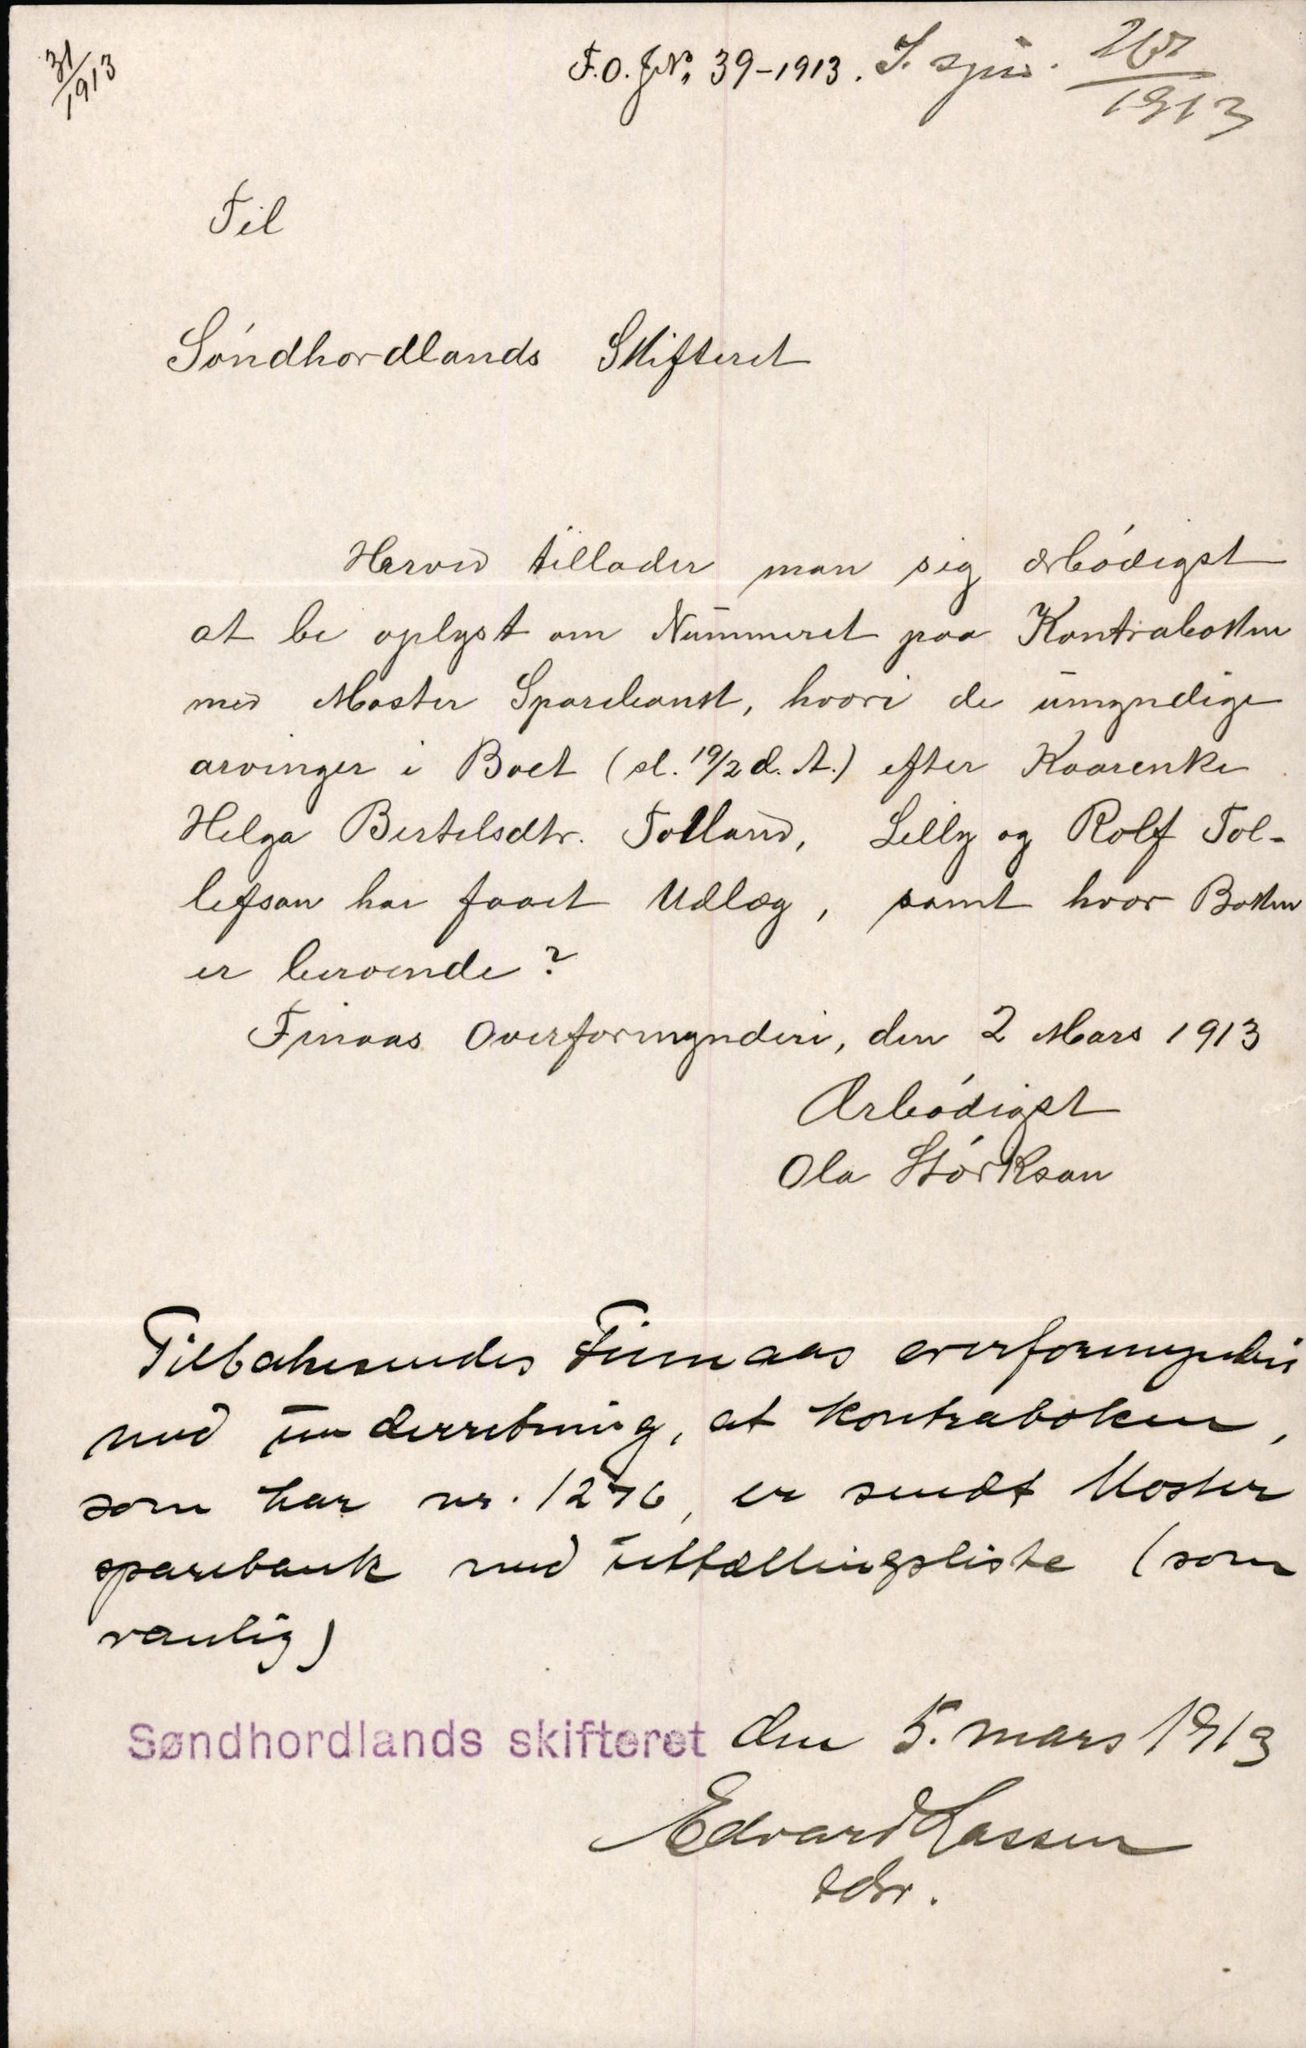 31/1913
F.O. J.No. 39-1913. J. 
1913
Til
Söndhordlands Skifteret
Herved tillader man sig ærbödigst
at be oplyst om Nummeret paa Kontraboken
med Moster Sparebank, hvori de umyndige
arvinger i Boet (sl. 19/2 d. A.) efter Kaarenke
Helga Bertelsdtr. Folland, Lilly og Rolf Tol-
lefsan har faaet Udlæg, samt hvor Boken
er beroende?
Finaas Overformynderi, den 2 Mars 1913
Ærbödigst
Ola Störksan
Tilbakesendes Finnaas overformynderi
med underretning, at kontraboken,
som har nr. 1276, er sendt Moster
sparebank med uttællingsliste (som
vanlig)
Søndhordlands skifteret den 5. mars 1913
Edvard Lassen